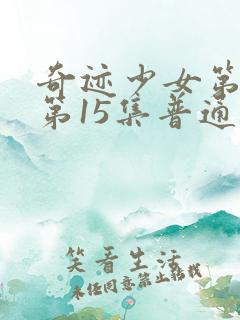 奇迹少女第
第15集普通
笑看生活
未经同意禁止转载